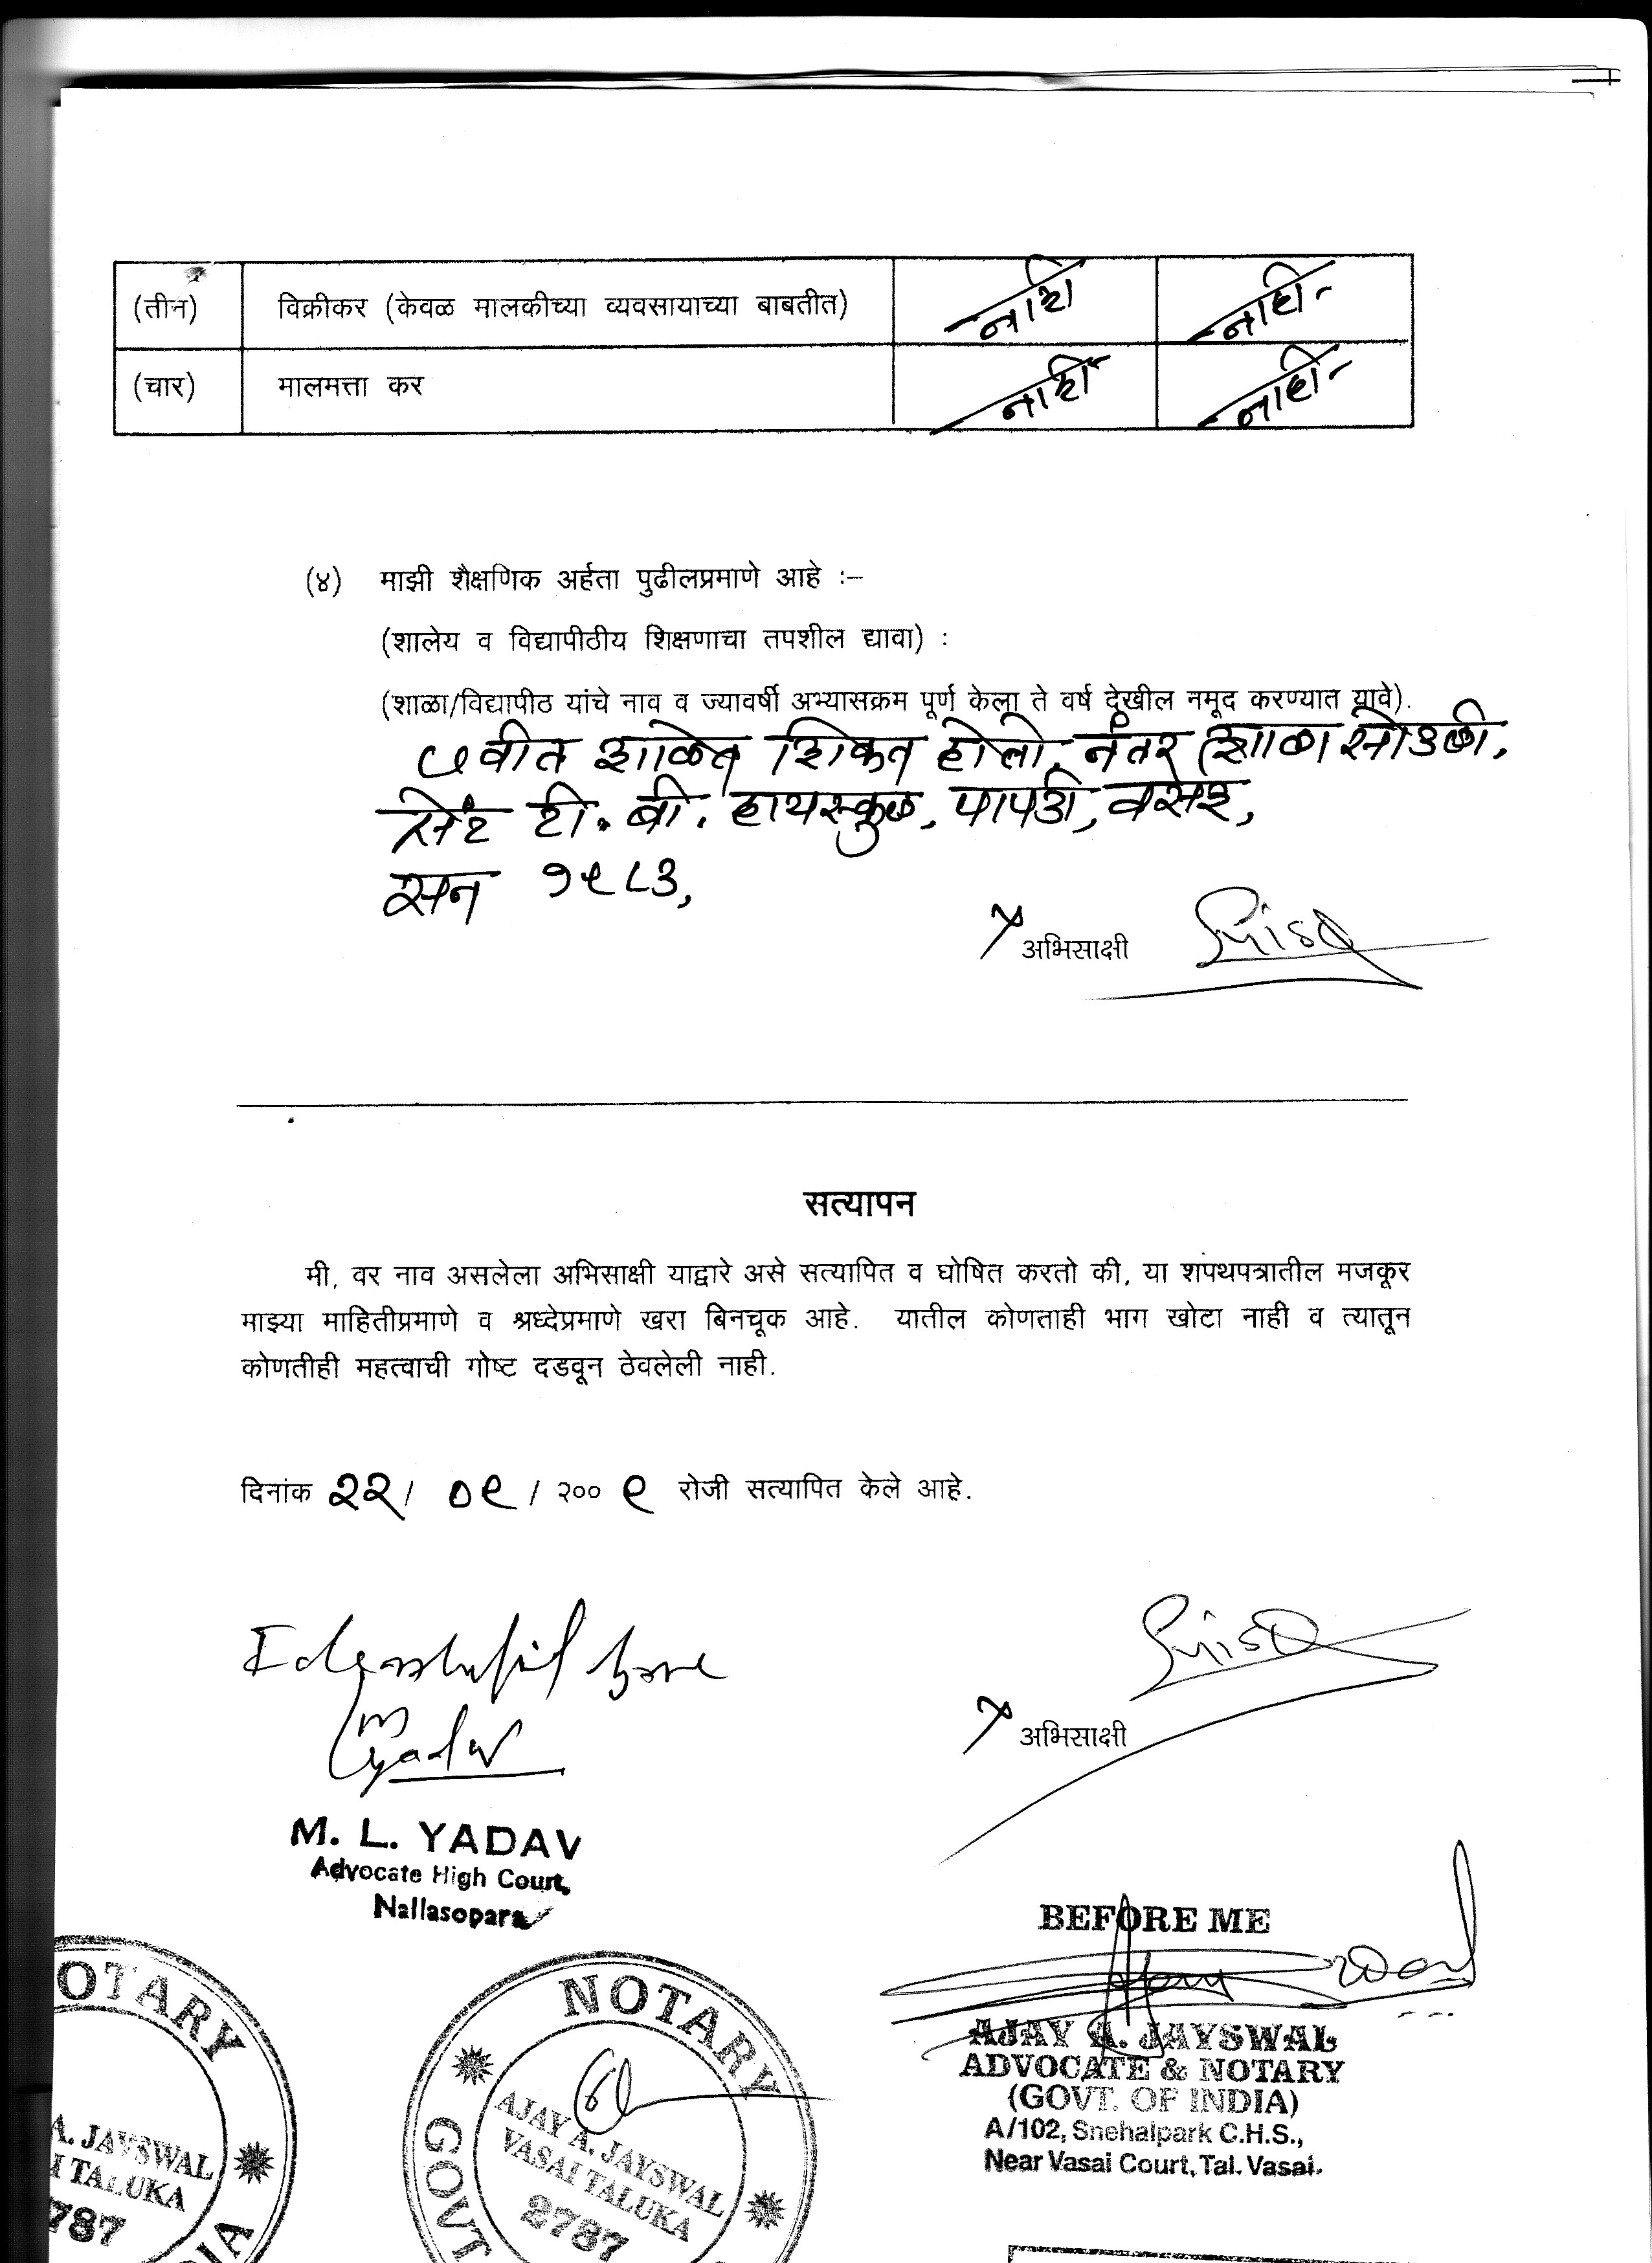 (तीन) विक्रीकर (केवळ मालकीच्या व्यवसायाच्या बाबतीत) नाही नाही-
(चार) मालमत्ता कर नाही नाही-
(४) माझी शैक्षणिक अर्हता पुढीलप्रमाणे आहे :–
(शालेय व विद्यापीठीय शिक्षणाचा तपशील द्यावा) :
(शाळा/विद्यापीठ यांचे नाव व ज्यावर्षी अभ्यासक्रम पूर्ण केला ते वर्ष देखील नमूद करण्यात यावे).
वीत शाळेत शिकत होतो. नंतर शाळा सोडली.
सेंट टी. बी. हायस्कुल, पापडी, वसई,
सन १९८३,
अभिसाक्षी
सत्यापन
मी, वर नाव असलेला अभिसाक्षी याद्वारे असे सत्यापित व घोषित करतो की, या शपथपत्रातील मजकूर
माझ्या माहितीप्रमाणे व श्रध्देप्रमाणे खरा बिनचूक आहे. यातील कोणताही भाग खोटा नाही व त्यातून
कोणतीही महत्वाची गोष्ट दडवून ठेवलेली नाही.
दिनांक २२/ ०९/ २००९ रोजी सत्यापित केले आहे.
अभिसाक्षी
M. L. YADAV
Advocate High Court,
Nallasopara
BEFORE ME
AJAY A. JAYSWAL
ADVOCATE & NOTARY
(GOVT. OF INDIA)
A/102, Snehalpark C.H.S.,
Near Vasai Court, Tal. Vasai.
NOTARY
AJAY A. JAYSWAL
VASAI TALUKA
2787
GOVT
OTARY
A. JAYSWAL
I TALUKA
787
DIA